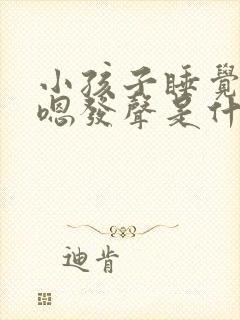 小孩子睡覺
嗯發聲是什
迪肯